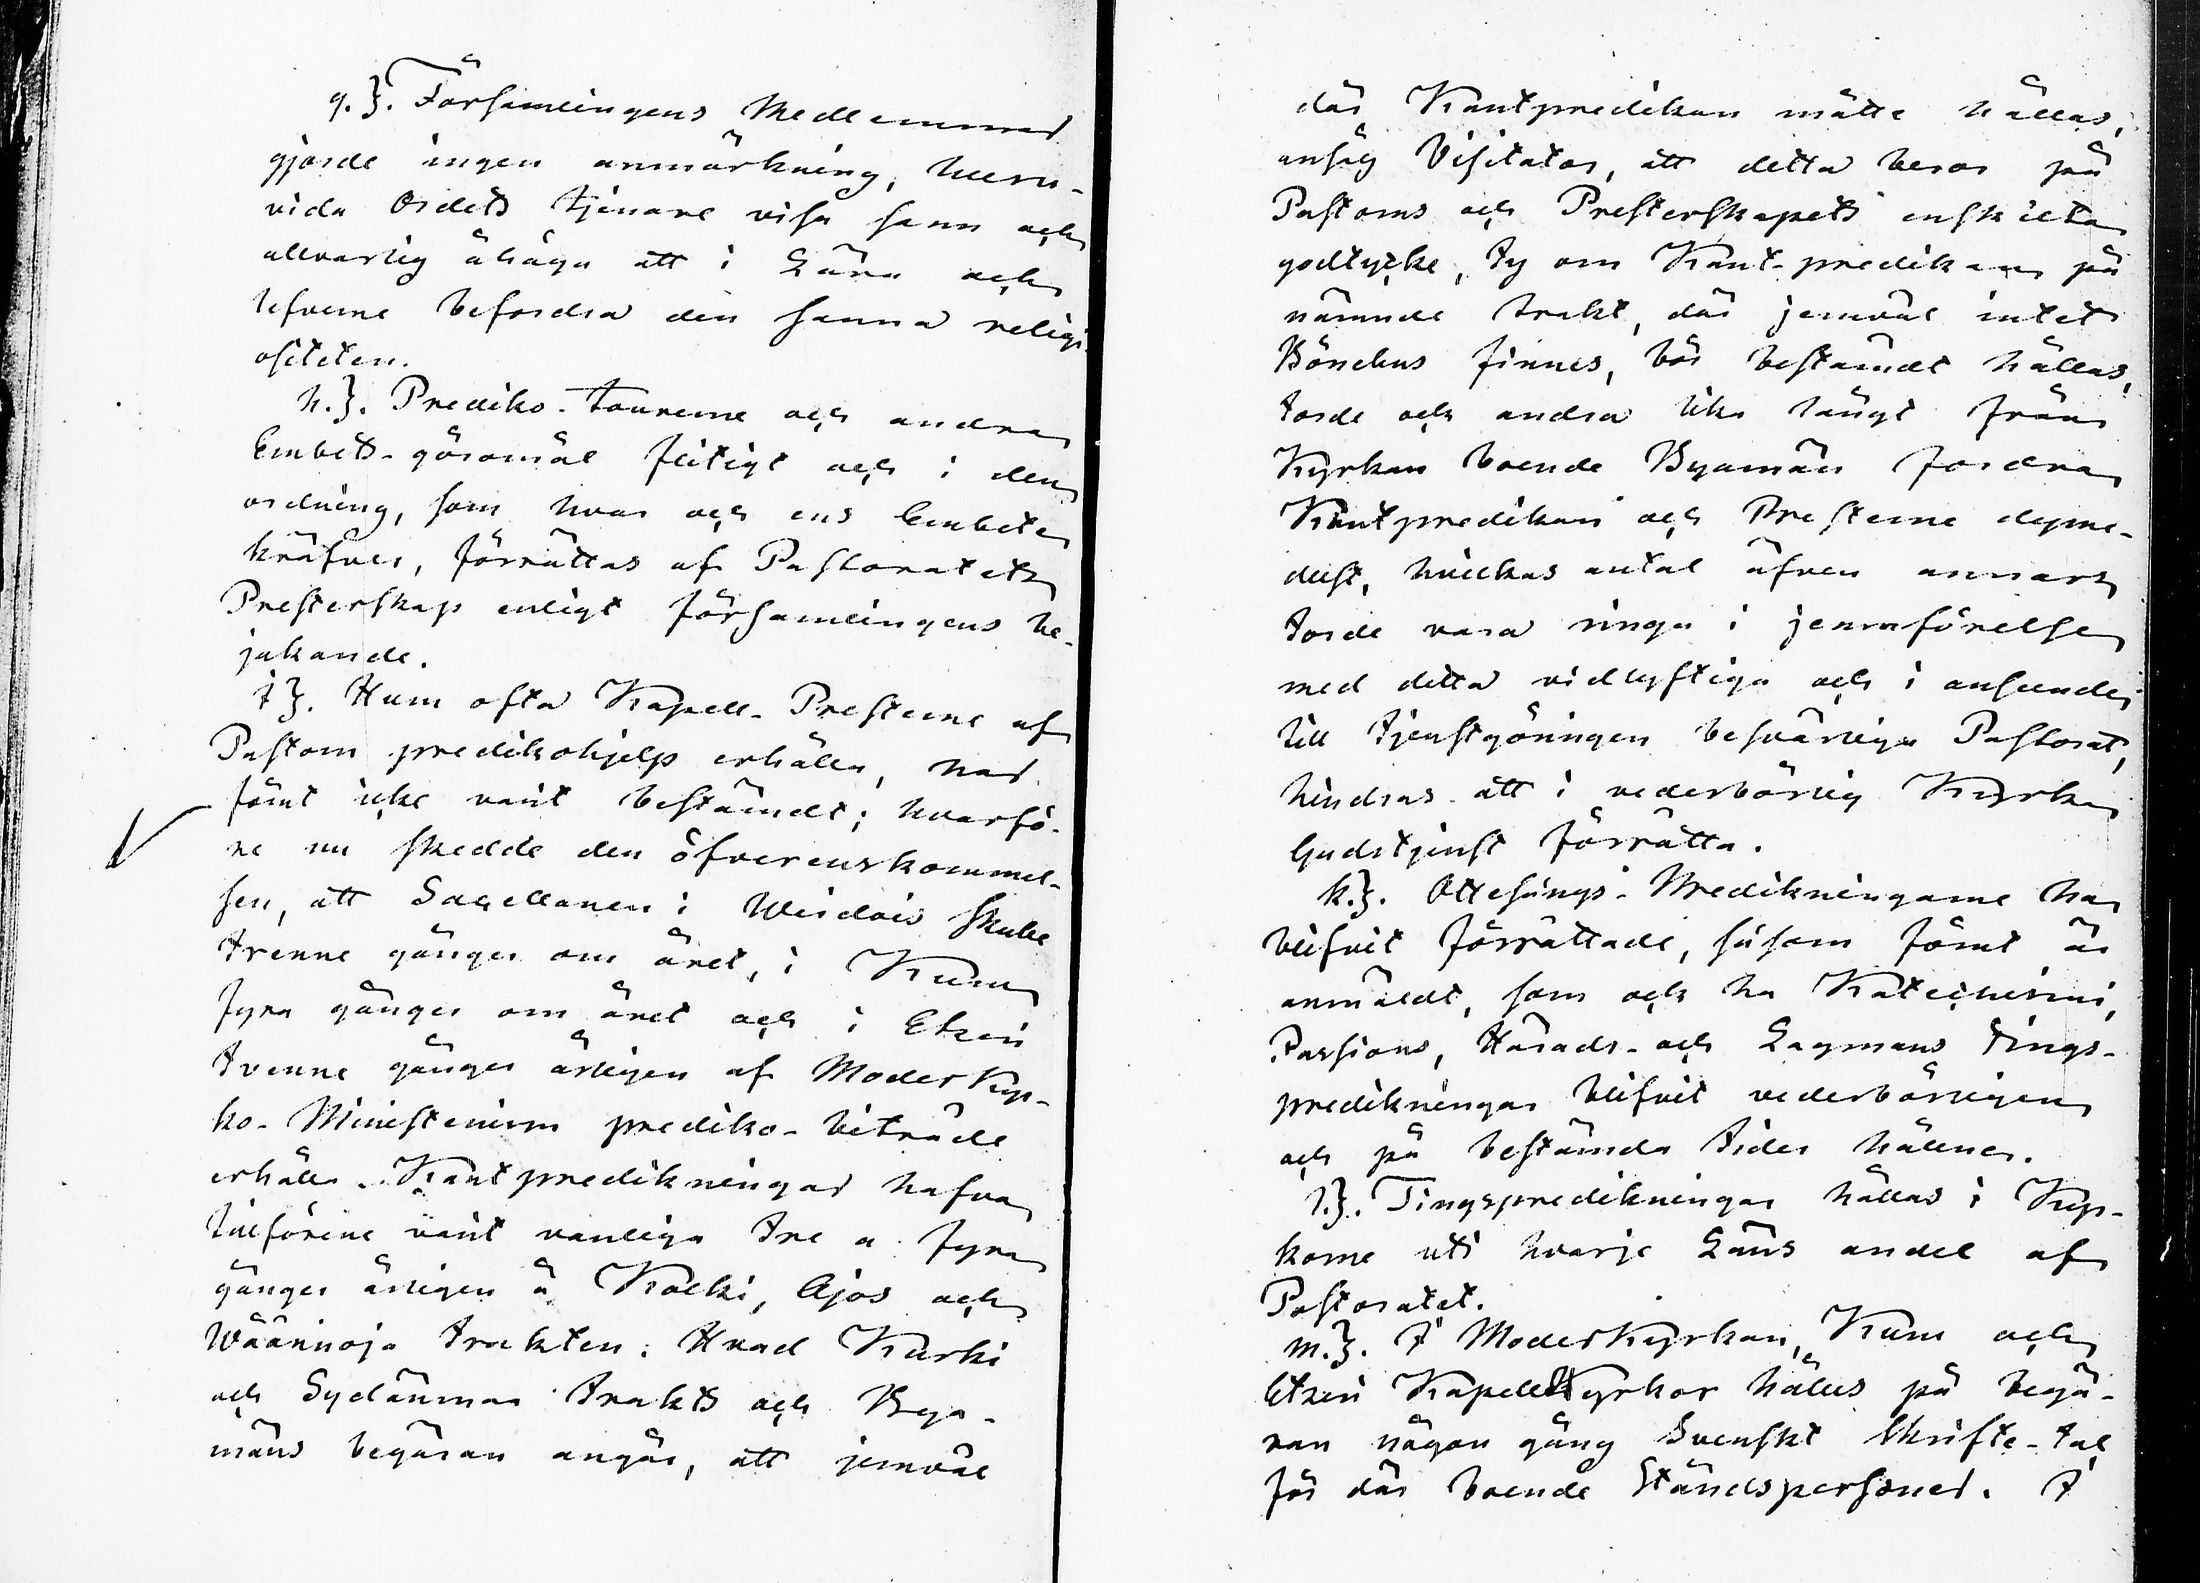 g.}. Församlingens Medlemmar
gjorde ingen anmärkning, huru-
vida Ordets tjenare visa sann och
allvarlig åhåga att i Lära och
lefverne befordra den sanna religi-
ositeten.
h.}. Prediko-tourerne och andra
Embets-göromål flitigt och i den
ordning, som hvar och ens Embete
kräfver, förrättas af Pastoratets
Presterskap enligt församlingens be-
jakande.
i}. Huru ofta Kapell-Presterne af
Pastorn predikohjelp erhålla, har
förut icke varit bestämdt; hvarfö-
re nu skedde den öfverenskommel-
sen, att Sacellanen i Wirdois skulle
trenne gånger om året, i Kuru
fyra gånger om året och i Etzeri
tvenne gånger årligen af Moderkyr-
ko-Ministerium prediko-biträde
erhålla. Kantpredikningar hafva
tillförene varit vanliga tre a fyra
gånger årligen å Kolki, Ajos och
Wäärinoja trakten. Hvad Kurki
och Sydänmaa trakts och Bya-
mäns begäran angår, att jemväl
där Kantpredikan måtte hållas,
ansåg Visitator, att detta beror på
Pastorns och Presterskapets enskilta
godtycke, ty om Kant-predikan på
nämnde trakt, där jemväl intet
Bönehus finnes, bör bestämdt hållas,
torde och andra lika långt från
Kyrkan boende Byamän fordra
Kantpredikan och Presterne dyme-
delst, hvilkas antal äfven annars
torde vara ringa i jemnförelse
med detta vidlyftiga och i anseende
till tjenstgöringen besvärliga Pastorat,
hindras att i vederbörlig Kyrka
Gudstjenst förrätta.
k.}. Ottesångs-Predikningarne ha
blifvit förrättade, såsom förut är
anmäldt, som och ha Katechismi,
Passions, Härads- och Lagmans Tings-
predikningar blifvit vederbörligen
och på bestämda tider hållne.
l.}. Tingspredikningar hållas i Kyr-
korne uti hvarje Läns andel af
Pastoratet.
m.}. I Moderkyrkan, Kuru och
Etzeri KapellKyrkor hålles på begä-
ran någon gång Svenskt Skrifte-tal
för där boende Ståndspersoner. I